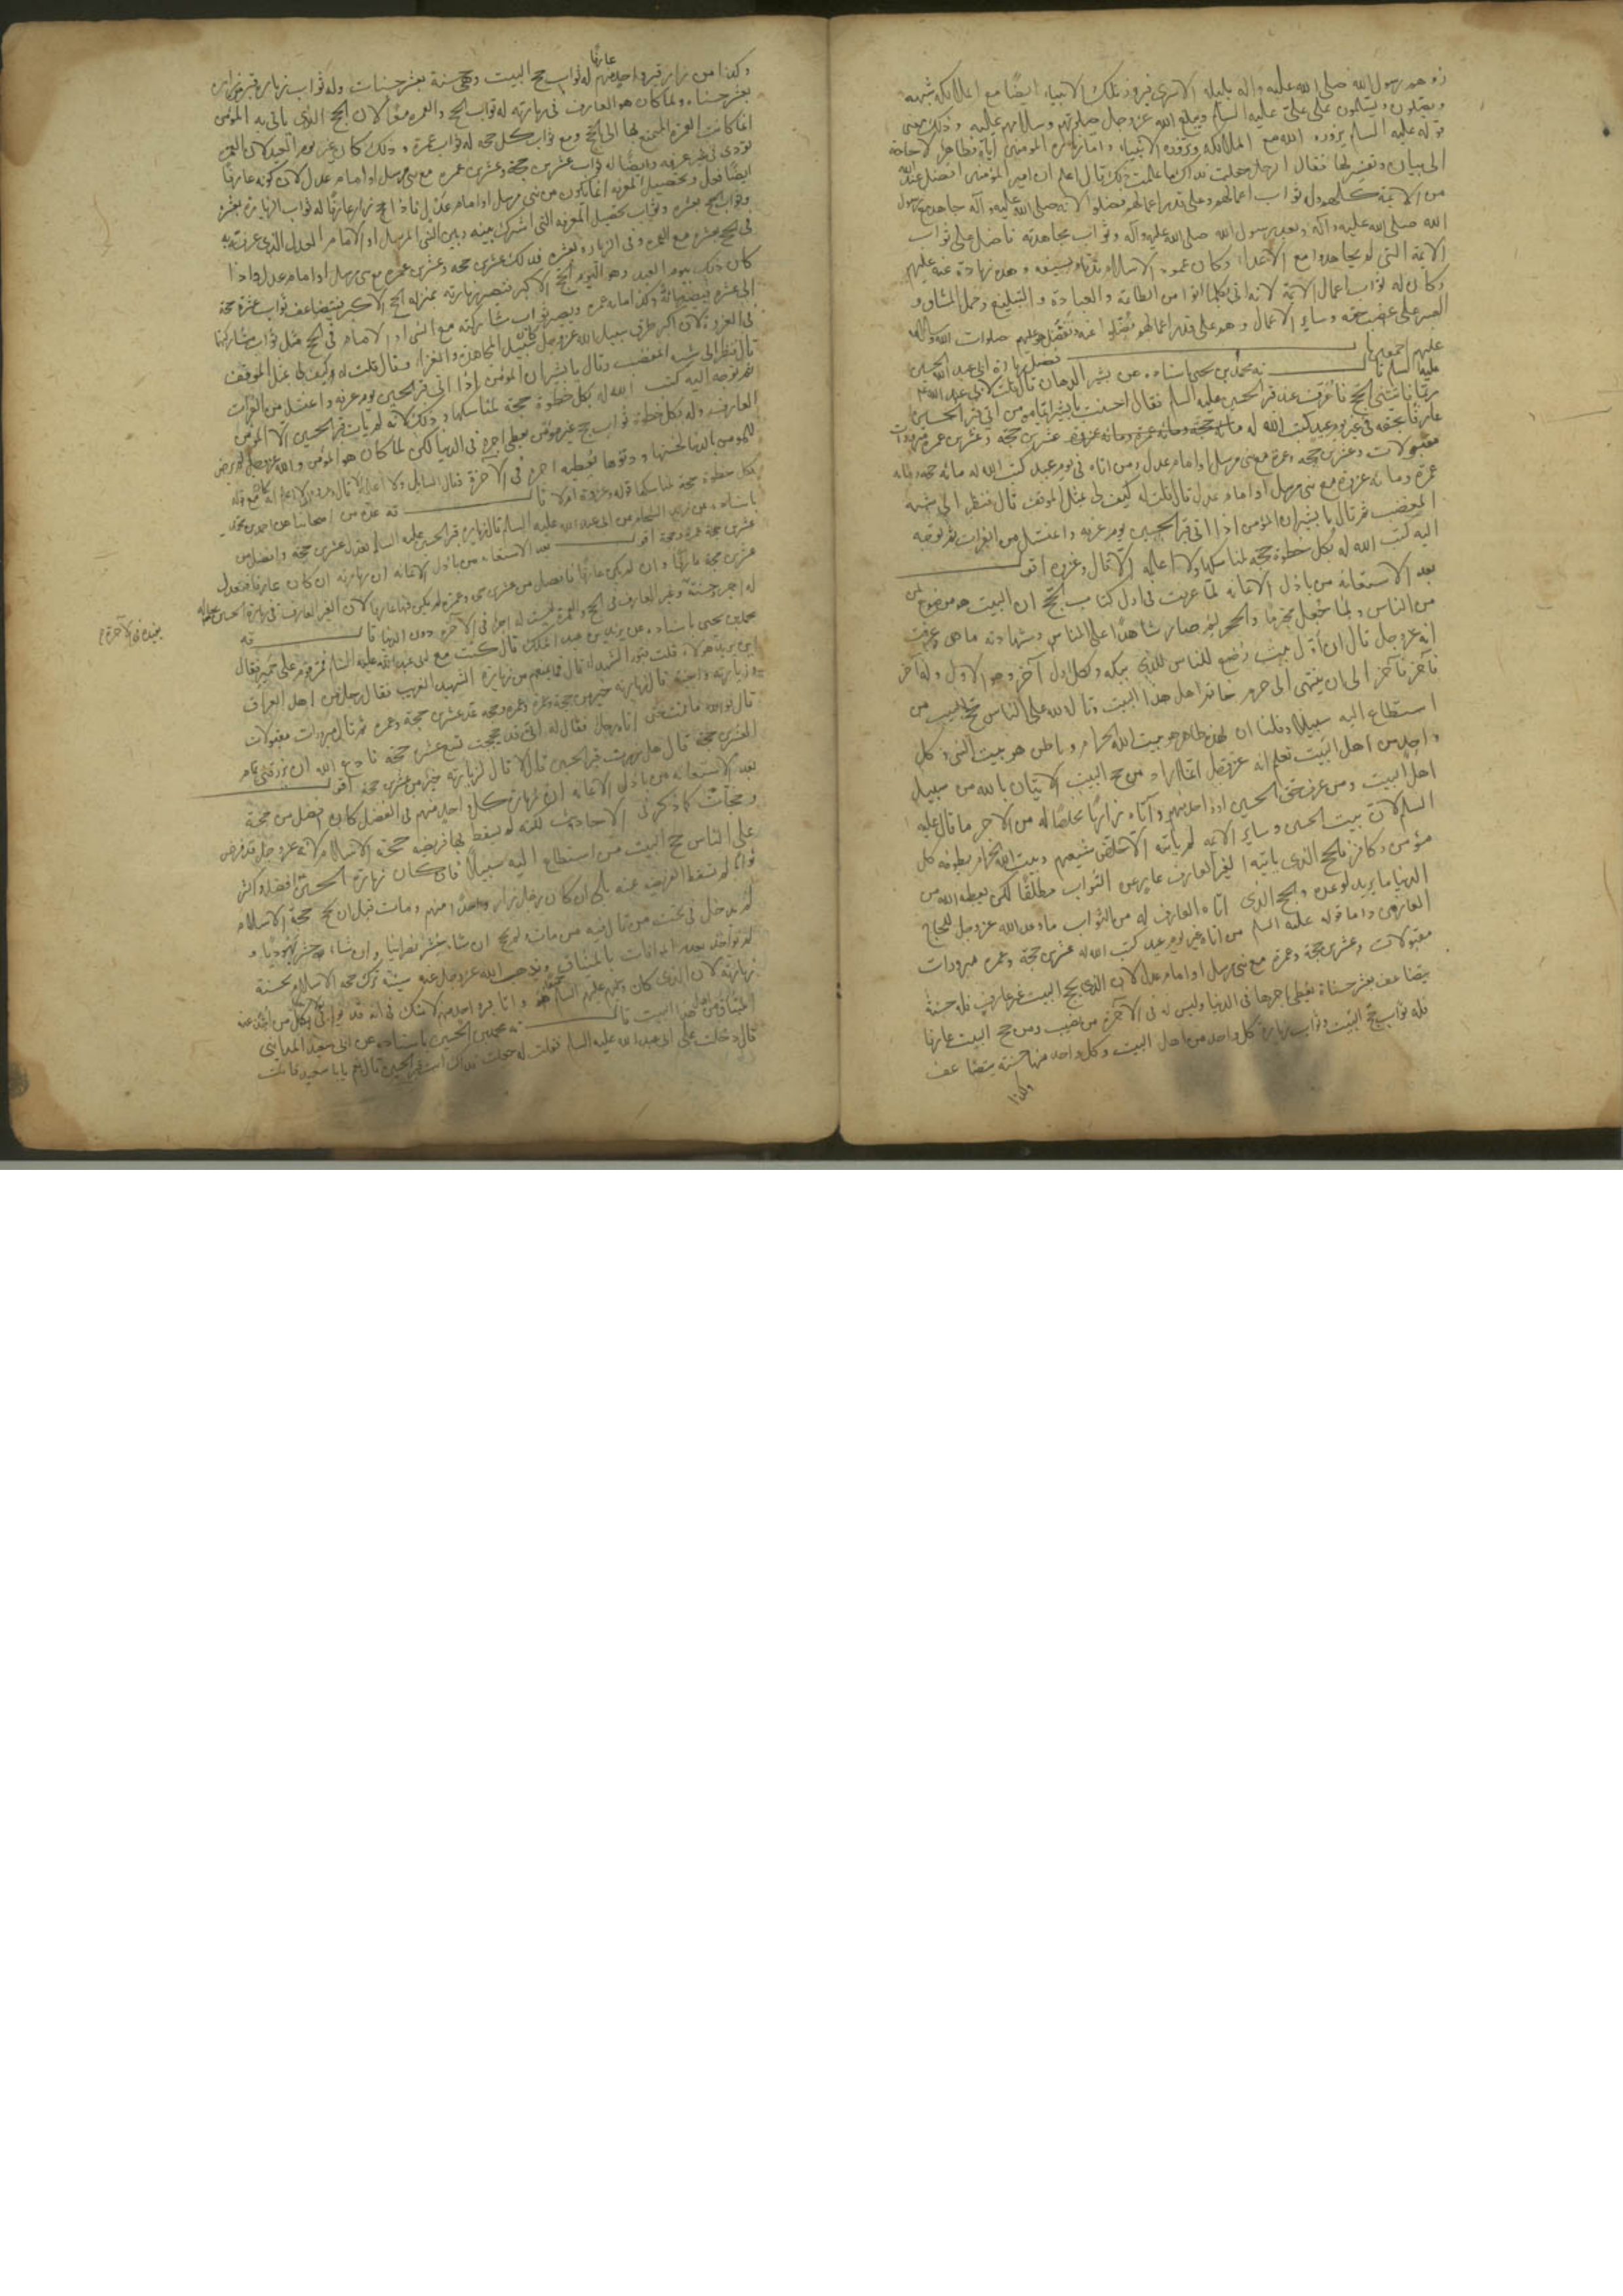 زوهد رسول الله صلى الله عليه واله بليلة الاسرى فيزور تلك الانبياء ايضا مع الملائكة
ويصلون ويسلمون على علي عليه السلام ويبلغ الله عز وجل صلوتهم وسلامهم عليه وذلك معنى
قوله عليه السلام يزوره الله مع الملائكة ويزوره الانبياء واما زيارة المؤمنين اياه فظاهر لا حاجة
الى بيان وتفسير لها فقال الرجل جعلت فداك ما علمت ذلك قال اعلم ان امير المؤمنين افضل عند الله
من الائمة كلهم وله ثواب اعمالهم وعلى قدر اعمالهم فضلوا لانه صلى الله عليه وآله جاهد مع رسول
الله صلى الله عليه وآله وبعد رسول الله صلى الله عليه وآله وثواب مجاهدته فاضل على ثواب
الائمة التي لم يجاهدوا مع الاعداء وكان عمود الاسلام بسيفه وهذه زيادة عنه عليهم
وكان له ثواب اعمال الائمة لانه اتى بكلما اتوا من الطاعة والعبادة والتبليغ وحمل المشاق و
الصبر على غصب حقه وسائر الاعمال وهو على قدر اعمالهم فضلوا صلوات الله وسلامه
عليهم اجمعين فضل زيارة ابي عبد الله الحسين
عليه السلام قا به محمد بن يحيى باسناده عن بشير الدهان قال قلت لابي عبد الله ع
ربما فاتني الحج فاعرف عند قبر الحسين عليه السلام فقال احسنت يا بشير ايما مؤمن اتى قبر الحسين
عارفا بحقه في غير يوم عيد كتب الله له عشرين حجة وعشرين عمرة مبرورات
مقبولات وعشرين حجة وعمرة مع نبي مرسل او امام عدل ومن اتاه في يوم عيد كتب الله له مائة حجة ومائة
عمرة ومائة غزوة مع نبي مرسل او امام عدل قال قلت له كيف لي بمثل الموقف قال فنظر الي شبه
المغضب ثم قال يا بشير ان المؤمن اذا اتى قبر الحسين يوم عرفة واغتسل من الفرات ثم توجه
اليه كتب الله له بكل خطوة حجة بمناسكها ولا اعلمه الا قال وغزوة اقول
بعد الاستعانة من باذل الاعانة لما عرفت في اول كتاب الحج ان البيت هو موضوع
من الناس ولما جعل والحجر صار شاهدا على الناس وشهادته ما هي وعرفت
انه عز وجل قال ان اول بيت وضع للناس للذي ببكة ولكل اول آخر وهو الاول وله آخر
فآخر فآخر الى ان ينتهي الى اهل هذا البيت وقال لله على الناس حج البيت من
استطاع اليه سبيلا وقلنا ان لهذه ظاهر هو بيت الله الحرام وباطن هو بيت النبي وكل
واحد من اهل البيت نعلم انه عز وجل انما اراد من حج البيت الاتيان بالله من سبيل
اهل البيت ومن عرف حق الحسين او واحد منهم وأتاه زائرا مخلصا له من الاخر ما قال عليه
السلام لان بيت الحسين وسائر الائمة لم يأته الا خلص شيعتهم وبيت الله الحرام يطوفه كل
مؤمن وكافر فالحج الذي يأتيه الغير العارف عار عن الثواب مطلقا لكن يعطه الله من
الدنيا ما يريد لوعده والحج الذي اتاه العارف له من الثواب ما وعد الله عز وجل للحجاج
العارفين واما قوله عليه السلم من اتاه غير يوم عيد كتب الله له عشرين حجة وعمرة مبرورات
مقبولات وعشرين حجة وعمرة مع نبي مرسل او امام عدل لان الذي يحج البيت غير عارف فله حسنة
يضاعف بعشر حسنات يعطى اجرها في الدنيا وليس له في الآخرة من نصيب ومن حج البيت عارفا
فله ثواب حج البيت وثواب زيارة كل واحد من اهل البيت وكل واحد منها حسنة يتضاعف
وكذا
وكذا من زار قبر واحد منهم عارفا له ثواب حج البيت وهي حسنة بعشر حسنات وله ثواب زيارة
بعشر حسنات ولما كان هو العارف في زيارته له ثواب الحج والعمرة معا لان الحج الذي ياتي به المؤمن
انما كانت العمرة المتمتع بها الى الحج ومع ثواب كل حجة له ثواب عمرة وذلك كان غير يوم العيد لان العمرة
تؤدى في غير عرفة وايضا له ثواب عشرين حجة وعشرين عمرة مع نبي مرسل او امام عدل لان كونه عارفا
ايضا فعل وتحصيل المعرفة انما يكون من نبي مرسل او امام عدل فاذا حج زار عارفا له ثواب الزيارة بعشرة
وثواب الحج بعشرة وثواب تحصيل المعرفة التي اشترك بينه وبين النبي المرسل او الامام العدل الذي عرفت به
في الحج بعشرة مع العمرة وفي الزيارة بعشرة فذلك عشرين حجة وعشرين عمرة مع نبي مرسل او امام عدل واذا
كان ذلك يوم العيد وهو اليوم الحج الاكبر فتصير زيارته بمنزلة الحج الاكبر فيتضاعف ثواب عشرة حجة
الى عشرة فيصير مائة وكذا مائة عمرة ويصير ثواب مشاركته مع النبي او الامام في الحج مثل ثواب مشاركتهما
في الغزو لان اكبر طرق سبيل الله عز وجل كان سبيل المجاهدة والغزا وقال قلت له وكيف لي بمثل الموقف
قال فنظر الي شبه المغضب وقال يا بشير ان المؤمن اذا اتى قبر الحسين يوم عرفة واغتسل من الفرات
ثم توجه اليه كتب الله له بكل خطوة حجة بمناسكها وذلك لانه لم يأت قبر الحسين الا المؤمن
العارف وله بكل خطوة ثواب حج غير مؤمن يعطى اجره في الدنيا لكن لما كان هو المؤمن والله عز وجل لم يرض
للمؤمن بالدنيا لخستها ودنوها يعطيه اجره في الآخرة فقال السايل ولا اعلمه الا قال وغزوة
بكل خطوة حجة بمناسكها قوله وغزوة اولا قا به عدة من اصحابنا عن احمد بن محمد
باسناده عن زيد الشحام عن ابي عبد الله عليه السلم قال زيارة قبر الحسين عليه السلم تعدل عشرين حجة وافضل من
عشرين حجة وعمرة اقول بعد الاستعانة من باذل الاعانة ان زيارته ان كان عارفا فتعدل
عشرين حجة عارفا وان لم يكن عارفا فافضل من عشرين حجة وعمرة لم يكن فيها عارفا لان الغير العارف في زيارة الحسين
له اجر حسنة وغير العارف في الحج والعمرة ليست له اجرا في الآخرة دون الدنيا قا به
يفيده في الآخرة
محمد بن يحيى باسناده عن يزيد بن عبد الملك قال كنت مع ابي عبد الله عليه السلم فمر قوم على حمير فقال
اين يريد هؤلاء قلت قبور الشهداء قال فما يمنعهم من زيارة الشهيد الغريب فقال رجل من اهل العراق
وزيارته واجبة قال زيارته خير من حجة وعمرة وعمرة وحجة عد عشرين حجة وعمرة ثم قال مبرورات مقبولات
قال فوالله ما قمت حتى اتاه رجل فقال له اني قد حججت تسع عشرة حجة فادع الله ان يرزقني تمام
العشرين حجة قال هل زرت قبر الحسين قال لا قال لزيارته خير من عشرين حجة اقول
بعد الاستعانة من باذل الاعانة ان زيارة كل واحد منهم في الفضل كان افضل من حجة
وحجات كما ذكر في الاحاديث لكنه لم يسقط بها فريضة حجة الاسلام لانه عز وجل قد فرض
على الناس حج البيت من استطاع اليه سبيلا فان كان زيارة الحسين افضل واكثر
ثوابا لم تسقط الفريضة عنه بلى ان كان رجل زار واحدا منهم ومات قبل ان يحج حجة الاسلام
لم يدخل في تحت من قال فيه من مات ولم يحج ان شاء يحشر نصرانيا وان شاء يحشر يهوديا و
يذهب الله عز وجل عنه سيئة ترك حجة الاسلام بحسنة
زيارته لان الذي كان وعرفهم عليهم السلم واتا قبر احد منهم لا شك في انه قد
الميثاق من اهل هذا البيت قا به محمد بن الحسين باسناده عن ابي سعيد المدايني
قال دخلت على ابي عبد الله عليه السلم فقلت له جعلت فداك ائت قبر الحسين قال نعم يا با سعيد فائت